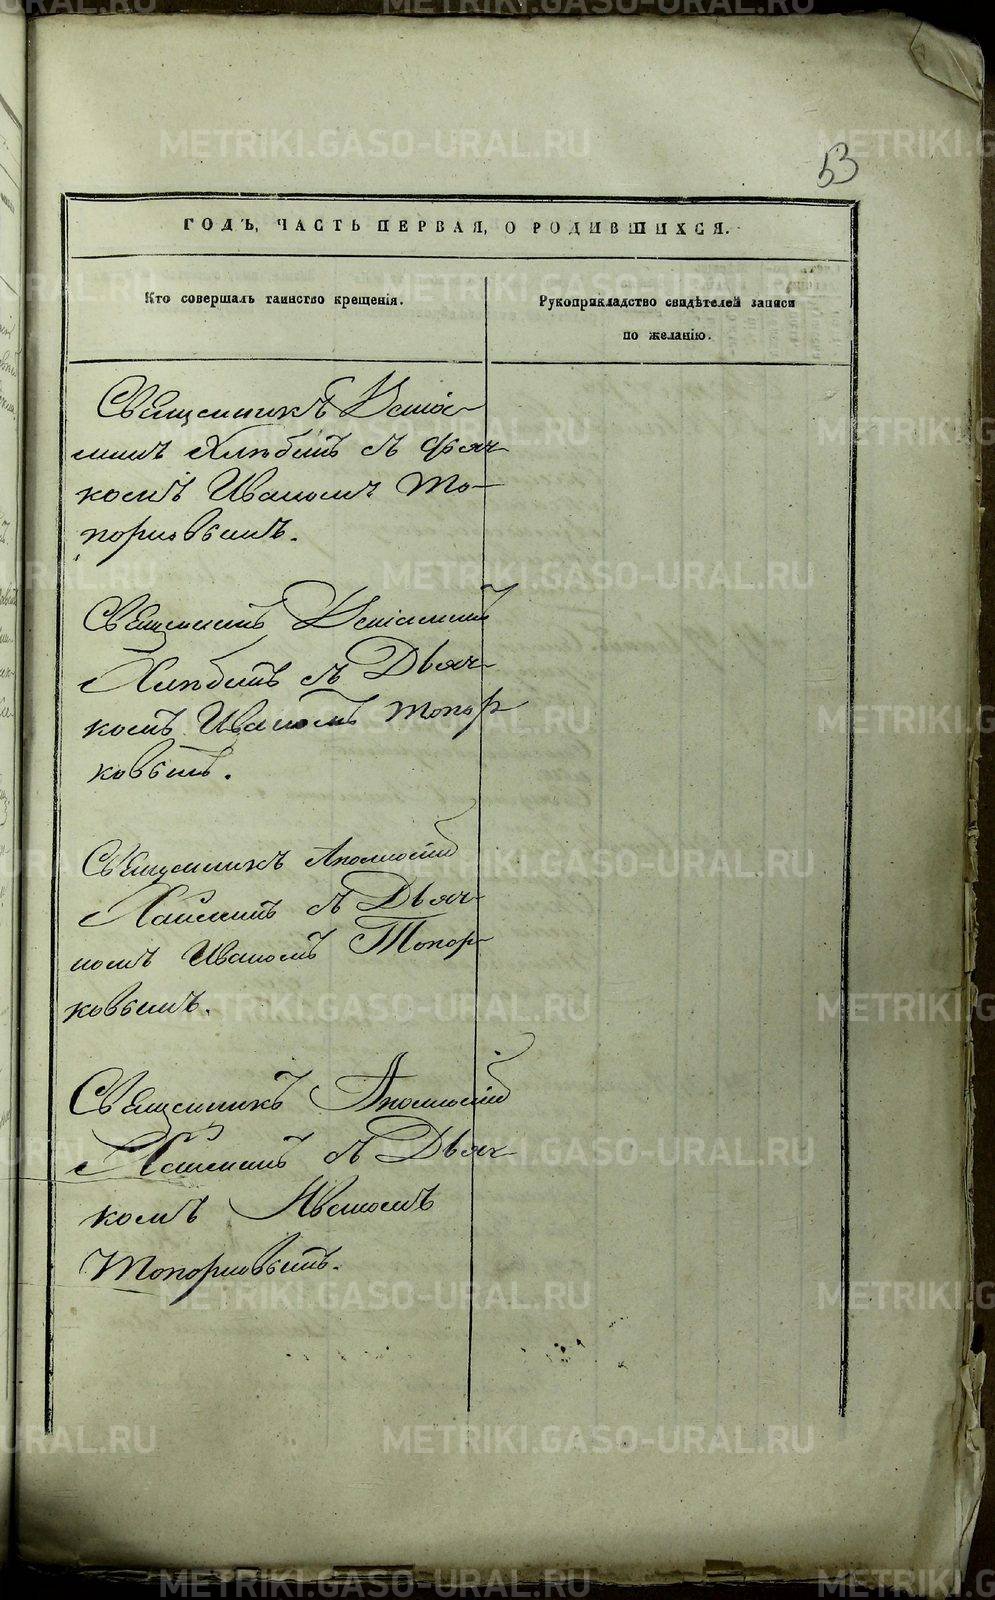 53
ГОДЪ, ЧАСТЬ ПЕРВАЯ, О РОДИВШИХСЯ.
Кто совершалъ таинство крещенія.
Рукоприкладство свидѣтелей записи
по желанію.
Священникъ Веніа-
минъ Хлѣбинъ съ дьяч-
комъ Иваномъ То-
порковымъ.
Священникъ Веніаминъ
Хлѣбинъ съ Дьяч-
комъ Иваномъ Топор
ковымъ.
Священникъ
съ Дьяч-
комъ Иваномъ Топор-
ковымъ.
Священникъ
съ Дьяч-
комъ Иваномъ
Топорковымъ.
METRIKI.GASO-URAL.RU